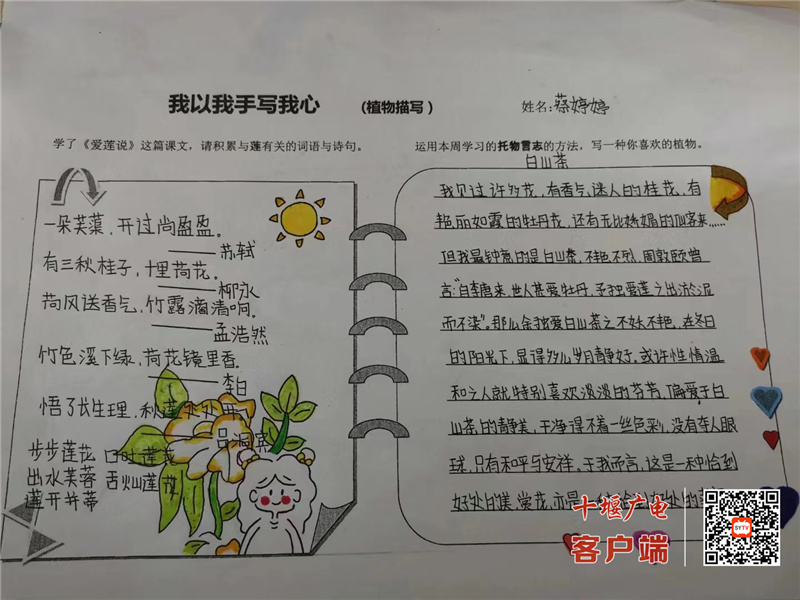 我以我手写我心 (植物描写)
姓名:蔡婷婷
学了《爱莲说》这篇课文，请积累与莲有关的词语与诗句。
一朵芙蕖，开过尚盈盈。
——苏轼
有三秋桂子，十里荷花。
——柳永
荷风送香气，竹露滴清响。
——孟浩然
竹色溪下绿，荷花镜里香。
——李白
悟了长生理，秋莲处处开
——吕洞宾
步步莲花 口吐莲花
出水芙蓉 舌灿莲花
莲开并蒂
运用本周学习的托物言志的方法，写一种你喜欢的植物。
白山茶
我见过许多花，有香气迷人的桂花，有
艳丽如霞的牡丹花，还有无比娇媚的仙客来……
但我最钟意的是白山茶，不艳不烈，周敦颐曾
言：“自李唐来，世人甚爱牡丹，予独爱莲之出淤泥
而不染”。那么余独爱白山茶之不妖不艳，在冬日
的阳光下，显得多么岁月静好。或许性情温
和之人就特别喜欢淡淡的芬芳，偏爱于白
山茶的静美，干净得不着一丝色彩，没有夺人眼
球，只有和平与安祥，于我而言，这是一种恰到
好处的美，赏花，亦是
十堰广电
客户端
SYTV